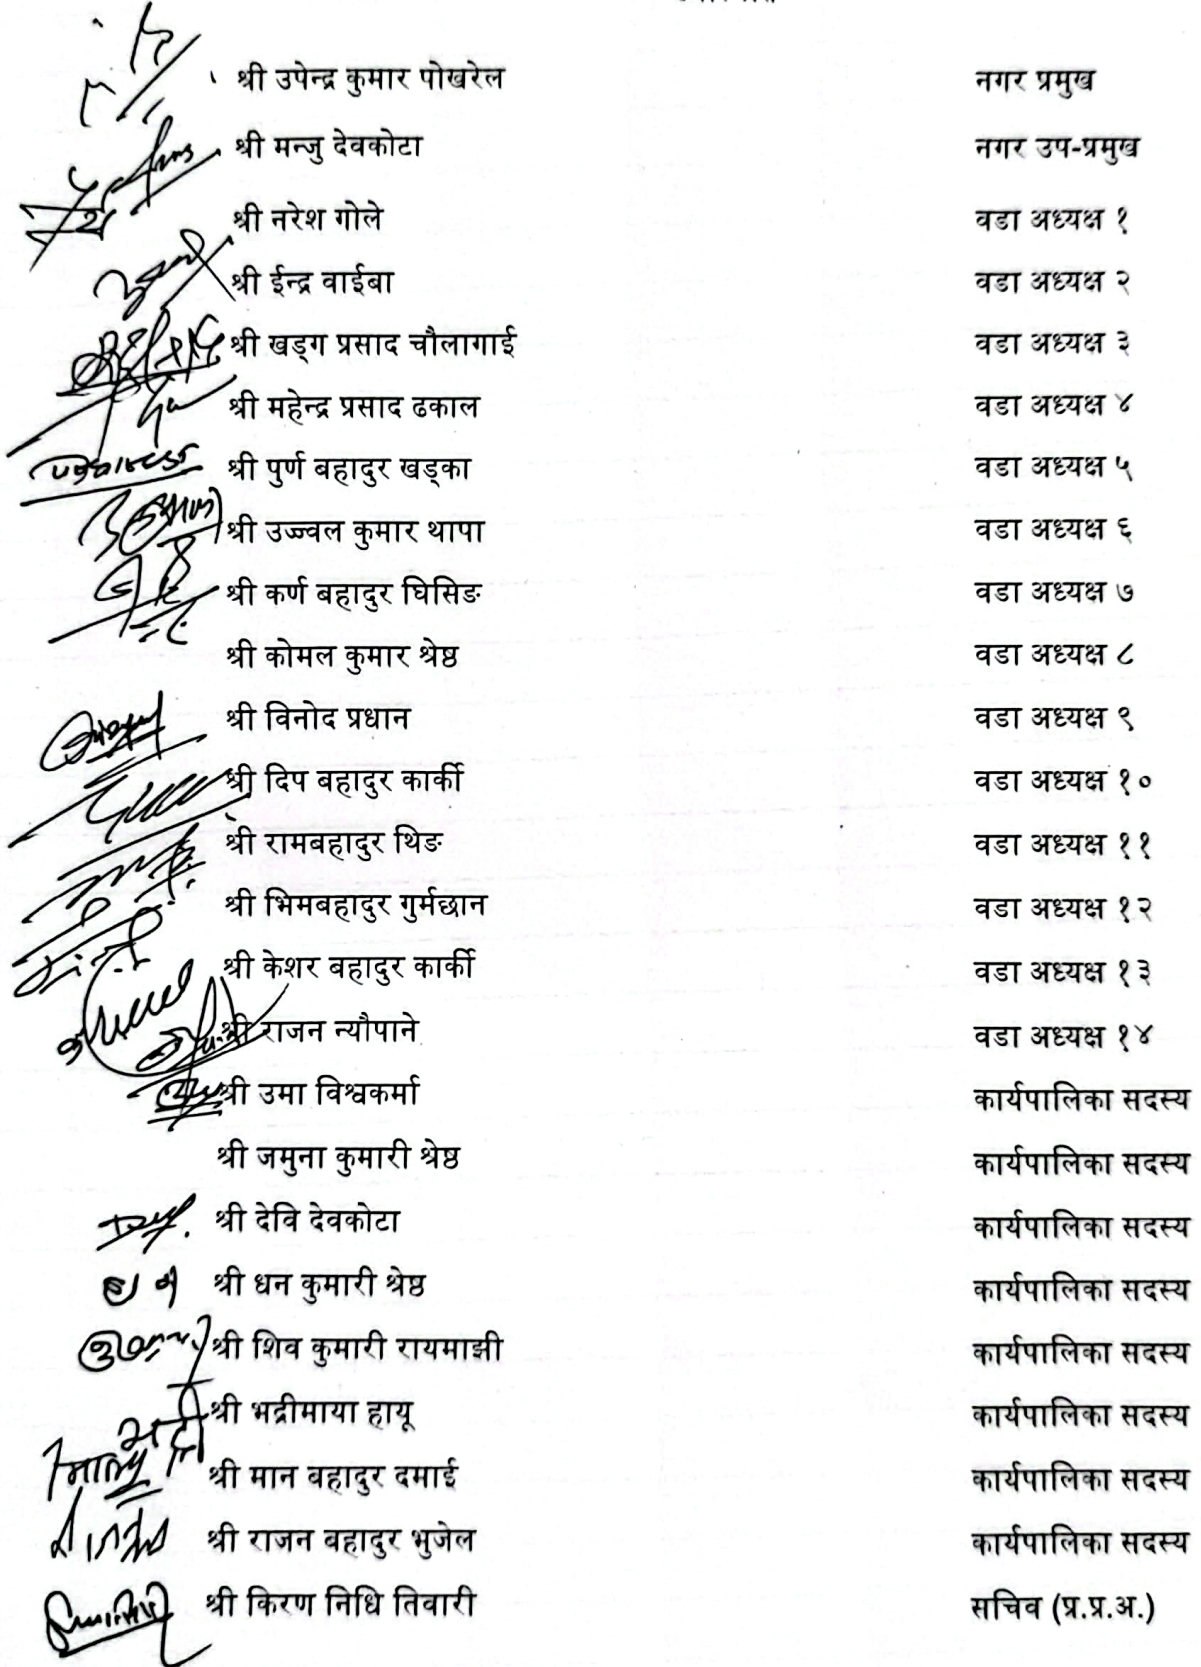 श्री उपेन्द्र कुमार पोखरेल नगर प्रमुख
श्री मन्जु देवकोटा नगर उप-प्रमुख
श्री नरेश गोले वडा अध्यक्ष १
श्री ईन्द्र वाईबा वडा अध्यक्ष २
श्री खड्ग प्रसाद चौलागाई वडा अध्यक्ष ३
श्री महेन्द्र प्रसाद ढकाल वडा अध्यक्ष ४
श्री पुर्ण बहादुर खड्का वडा अध्यक्ष ५
श्री उज्ज्वल कुमार थापा वडा अध्यक्ष ६
श्री कर्ण बहादुर घिसिङ वडा अध्यक्ष ७
श्री कोमल कुमार श्रेष्ठ वडा अध्यक्ष ८
श्री विनोद प्रधान वडा अध्यक्ष ९
श्री दिप बहादुर कार्की वडा अध्यक्ष १०
श्री रामबहादुर थिङ वडा अध्यक्ष ११
श्री भिमबहादुर गुर्मछान वडा अध्यक्ष १२
श्री केशर बहादुर कार्की वडा अध्यक्ष १३
श्री राजन न्यौपाने वडा अध्यक्ष १४
श्री उमा विश्वकर्मा कार्यपालिका सदस्य
श्री जमुना कुमारी श्रेष्ठ कार्यपालिका सदस्य
श्री देवि देवकोटा कार्यपालिका सदस्य
श्री धन कुमारी श्रेष्ठ कार्यपालिका सदस्य
श्री शिव कुमारी रायमाझी कार्यपालिका सदस्य
श्री भद्रीमाया हायू कार्यपालिका सदस्य
श्री मान बहादुर दमाई कार्यपालिका सदस्य
श्री राजन बहादुर भुजेल कार्यपालिका सदस्य
श्री किरण निधि तिवारी सचिव (प्र.प्र.अ.)